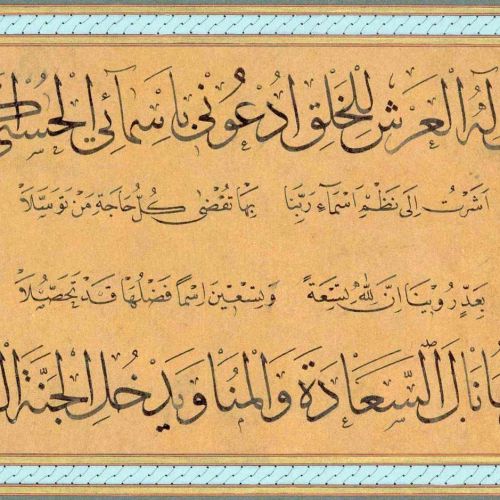 آله العرش للخلق ادعوني باسمائي الحسنى
اَشَرْتُ اِلىٰ نَظْمِ اَسْمَاءِ رَبِّنَا بِهَا تُقْضىٰ كُلُّ حَاجَةِ مَنْ تَوَسَّلاَ
بِعَدٍّ رُوِينَا اِنَّ لِلّٰهِ تِسْعَةً وَتِسْعِينَ اِسْمًا فَضْلُهَا قَدْ تَحَصَّلاَ
نال السعادة والمنا ويدخل الجنة